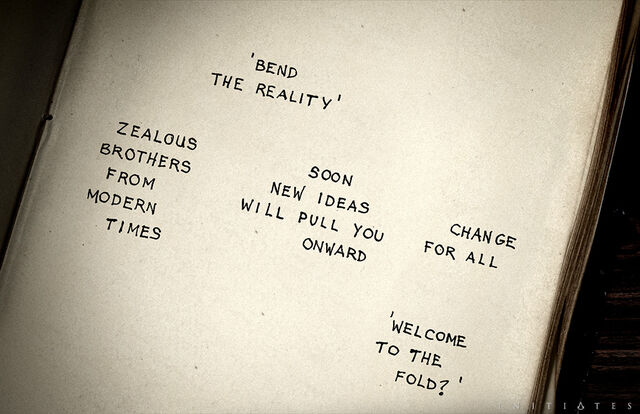 'BEND
THE REALITY'
ZEALOUS
BROTHERS
FROM
MODERN
TIMES
SOON
NEW IDEAS
WILL PULL YOU
ONWARD
CHANGE
FOR ALL
'WELCOME
TO THE
FOLD?'
INITIATES